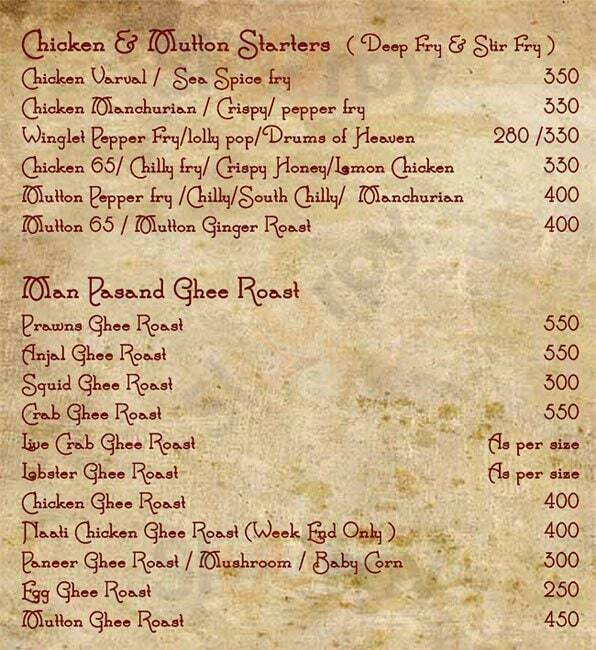 Chicken & Mutton Starters ( Deep Fry & Stir Fry )
Chicken Varval / Sea Spice fry 350
Chicken Manchurian / Crispy/ pepper fry 330
Winglet Pepper Fry/lolly pop/Drums of Heaven 280 /330
Chicken 65/ Chilly fry/ Crispy Honey/Lemon Chicken 330
Mutton Pepper fry /Chilly/South Chilly/ Manchurian 400
Mutton 65 / Mutton Ginger Roast 400
Man Pasand Ghee Roast
Prawns Ghee Roast 550
Anjal Ghee Roast 550
Squid Ghee Roast 300
Crab Ghee Roast 550
Live Crab Ghee Roast As per size
Lobster Ghee Roast As per size
Chicken Ghee Roast 400
Naati Chicken Ghee Roast (Week End Only ) 400
Paneer Ghee Roast / Mushroom / Baby Corn 300
Egg Ghee Roast 250
Mutton Ghee Roast 450